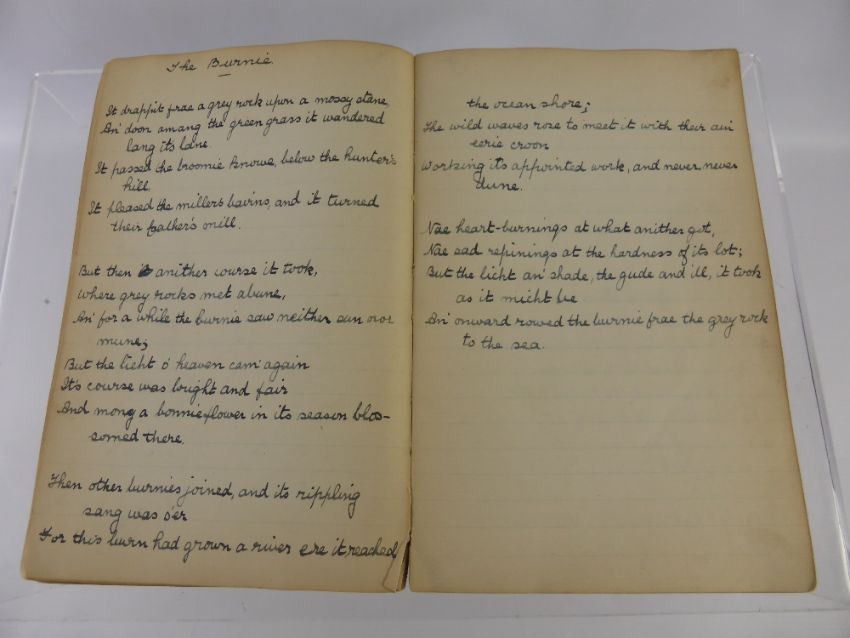 The Burnie.
It drappit frae a grey rock upon a mossy stane,
An' doon amang the green grass it wandered
lang its lane.
It passed the broomie knowe, below the hunter's
hill,
It pleased the millers bairns, and it turned
their father's mill.
But then anither course it took,
where grey rocks met abune,
An' for a while the burnie saw neither sun nor
mune;
But the licht o' heaven cam' again
It's course was bught and fair
And mony a bonnie flower in its season blos-
somed there.
Then other burnies joined, and its rippling
sang was o'er
For this burn had grown a river ere it reached
the ocean shore;
The wild waves rose to meet it with their ain
eerie croon
Working its appointed work, and never never
dune.
Nae heart-burnings at what anither got,
Nae sad repinings at the hardness of its lot;
But the licht an' shade, the gude and ill, it took
as it micht be
An' onward rowed the burnie frae the grey rock
to the sea.